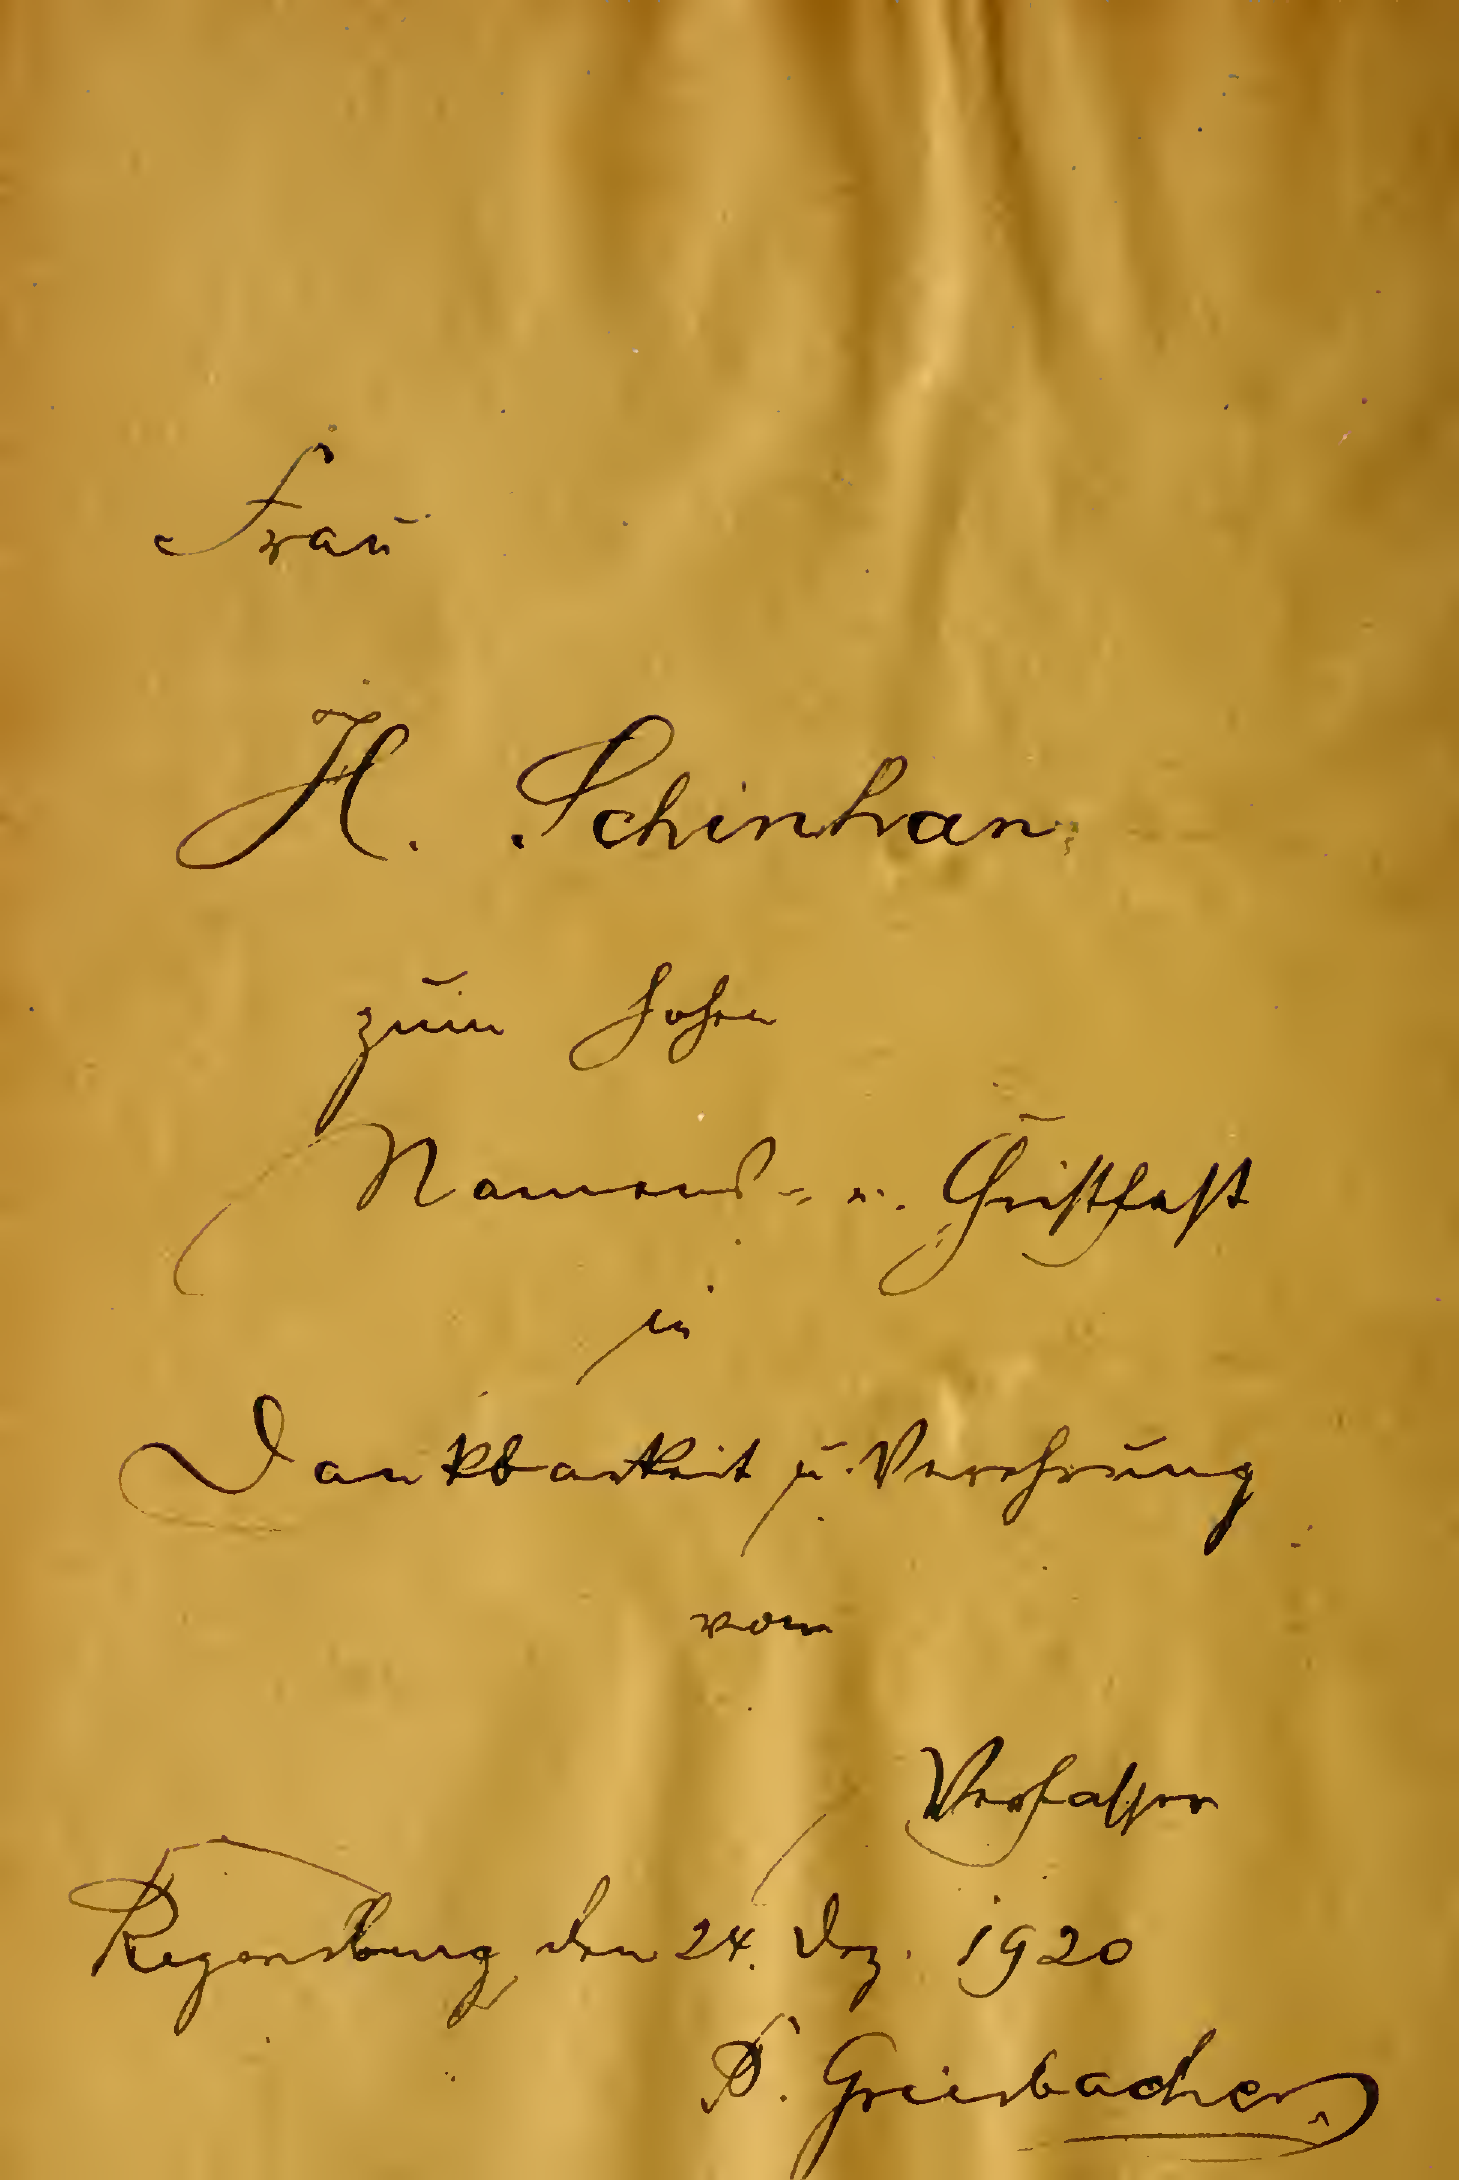 Frau
H. Schinhan
zum hohen
Namens- u. Christfest
in
Dankbarkeit u. Verehrung
vom
Verfasser
Regensburg, den 24. Dez. 1920
P. Griesbacher